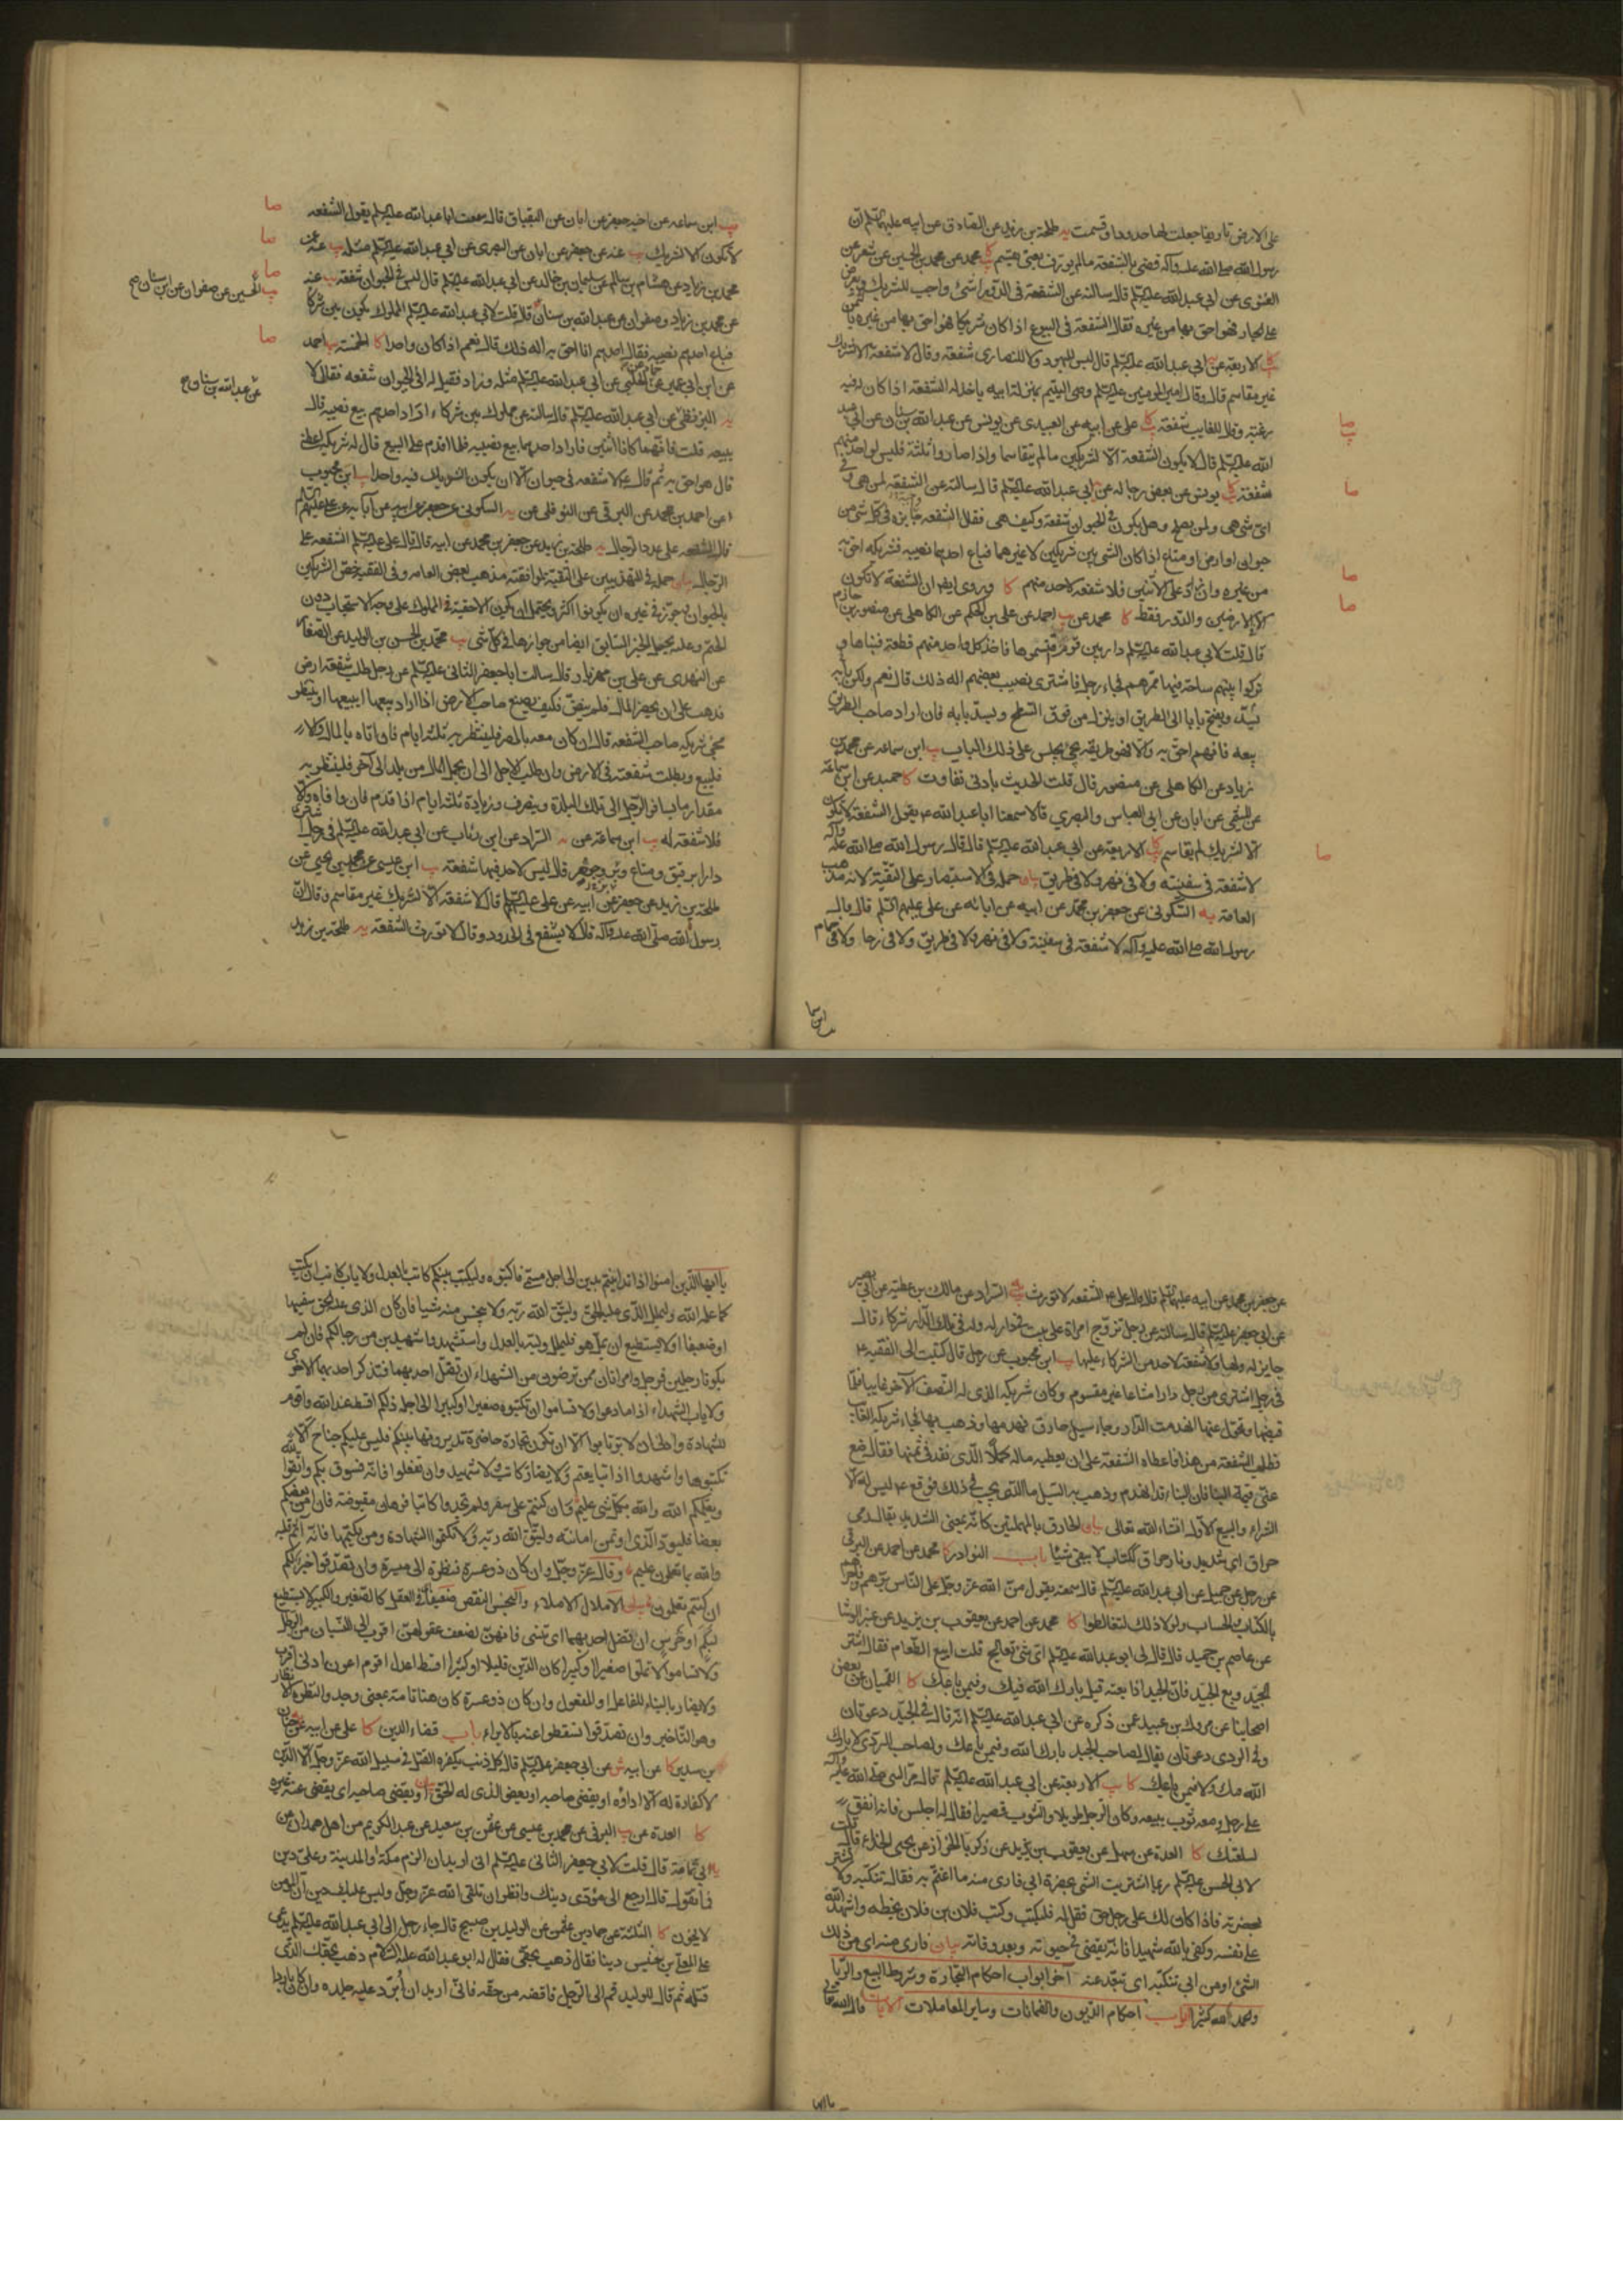 على الارض تاريخا جعلت لها حدودا وقسمت يه طلحة بن زيد عن الصادق عن ابيه عليهما السلم ان
رسول الله صلى الله عليه وآله قضى بالشفعة مالم يورف يعنى يقسم كا يب محمد عن محمد بن الحسين عن
الغنوى عن ابي عبد الله عليه السلم قال سالته عن الشفعة في الدور اشئ واجب للشريك ويعرض
على الجار فهو احق بها من غيره فقال الشفعة في البيوع اذا كان شريكا فهو احق بها من غيره بالثمن
كا يب الاربعة عن ابي عبد الله عليه السلم قال ليس لليهود ولا للنصارى شفعة وقال لا شفعة الا لشريك
غير مقاسم قال وقال امير المومنين عليه السلم وصى اليتيم بمنزلة ابيه ياخذ له الشفعة اذا كان له فيه
رغبة وقال للغايب شفعة كا يب على عن ابيه عن العبيدى عن يونس عن عبد الله بن سنان عن ابي عبد
الله عليه السلم قال لا يكون الشفعة الا لشريكين مالم يتقاسما واذا صاروا ثلثة فليس لواحد منهم
شفعة كا يب يونس عن بعض رجاله عن ابي عبد الله عليه السلم قال سالته عن الشفعة لمن هى وفي
اى شئ هى ولمن يصلح وهل يكون في الحيوان شفعة وكيف هى فقال الشفعة جايزة في كل شئ من
حيوان او ارض او متاع اذا كان الشئ بين شريكين لا غيرهما فباع احدهما نصيبه فشريكه احق به
من غيره وان زاد على الاثنين فلا شفعة لاحد منهم كا وروى ايضا ان الشفعة لا تكون
الا في الارضين والدور فقط كا محمد عن يب احمد عن على بن الحكم عن الكاهلى عن منصور بن حازم
قال قلت لابي عبد الله عليه السلم دار بين قوم اقتسموها فاخذ كل واحد منهم قطعة فبناها و
تركوا بينهم ساحة فيها ممرهم فجاء رجل فاشترى نصيب بعضهم اله ذلك قال نعم ولكن يسد بابه
ويفتح بابا الى الطريق او ينزل من فوق السطح ويسد بابه فان اراد صاحب الطريق
بيعه فانهم احق به والا فهو طريقه يجئ يجلس على ذلك الباب يب ابن سماعة عن محمد بن
زياد عن الكاهلى عن منصور قال قلت الحديث بادنى تفاوت كا حميد عن ابن سماعة
عن الميثمى عن ابان عن ابي العباس والبصرى قالا سمعنا ابا عبد الله ع يقول الشفعة لا تكون
الا لشريك لم يقاسم كا يب الاربعة عن ابي عبد الله عليه السلم قال قال رسول الله صلى الله عليه وآله
لا شفعة في سفينة ولا في نهر ولا في طريق بيان حمله في الاستبصار على التقية لانه مذهب
العامة يه السكونى عن جعفر بن محمد عن ابيه عن ابائه عن على عليهم السلم قال قال
رسول الله صلى الله عليه وآله لا شفعة في سفينة ولا في نهر ولا في طريق ولا في رحا ولا في حمام
صا
صا
صا
صا
صا
ابن سما
يب ابن سماعة عن اخيه جعفر عن ابان عن البقباق قال سمعت ابا عبد الله عليه السلم يقول الشفعه
لا تكون الا لشريك يب عنه عن جعفر عن ابان عن البصرى عن ابي عبد الله عليه السلم مثله يب عنه عن
محمد بن زياد عن هشام بن سالم عن سليمان بن خالد عن ابي عبد الله عليه السلم قال ليس في الحيوان شفعة يب عنه
عن محمد بن زياد وصفوان عن عبد الله بن سنان قال قلت لابي عبد الله عليه السلم المملوك يكون بين شركا
فباع احدهم نصيبه فقال احدهم انا احق به اله ذلك قال نعم اذا كان واحدا كا الخمسة يب احمد
عن ابن ابي عمير عن حماد عن الحلبى عن ابي عبد الله عليه السلم مثله وزاد فقيل له افي الحيوان شفعه فقال لا
يه البزنطى عن ابي عبد الله عليه السلم قال سالته عن مملوك بين شركاء اراد احدهم بيع نصيبه قال
يبيعه قلت فانهما كانا اثنين فاراد احدهما بيع نصيبه فلما اقدم على البيع قال له شريكه اعطنى
قال هو احق به ثم قال ع لا شفعه في حيوان الا ان يكون الشريك فيه واحدا يب ابن محبوب
عن احمد بن محمد عن البرقى عن النوفلى عن يه السكونى عن جعفر عن ابيه عن آبائه عن على عليهم السلم
قال الشفعه على عدد الرجال يه طلحة بن زيد عن جعفر بن محمد عن ابيه قال قال على عليه السلم الشفعه على
الرجال بيان حمله في التهذيبين على التقية لموافقته مذهب بعض العامه وفي الفقيه خص الشريكين
بالحيوان وجوز في غيره ان يكونوا اكثر ويحتمل ان يكون الاحقية في المملوك على وجه الاستحباب دون
الحتم وعليه يحمل الخبر السابق ايضا من جوازها في كل شئ يب محمد بن الحسن بن الوليد عن الصفار
عن النهدى عن على بن مهزيار قال سالت ابا جعفر الثانى عليه السلم عن رجل طلب شفعة ارض
فذهب على ان يحضر المال فلم ينض فكيف يصنع صاحب الارض اذا اراد بيعها ايبيعها او ينتظر
مجئ شريكه صاحب الشفعه قال ان كان معه بالمصر فلينتظر به ثلثة ايام فان اتاه بالمال والا
فليبع وبطلت شفعته في الارض وان طلب الاجل الى ان يحمل المال من بلد الى آخر فلينتظر به
مقدار ما يسافر الرجل الى تلك البلدة وينصرف وزيادة ثلثة ايام اذا قدم فان وافاه والا
فلا شفعة له يب ابن سماعة عن يه السراد عن ابن رئاب عن ابي عبد الله عليه السلم في رجل اشترى
دارا برقيق ومتاع وبز وجوهر قال ليس لاحد فيها شفعة يب ابن عيسى عن محمد بن يحيى عن
طلحة بن زيد عن جعفر عن ابيه عن على عليهم السلم قال لا شفعة الا لشريك غير مقاسم وقال ان
رسول الله صلى الله عليه وآله قال لا يشفع في الحدود وقال لا تورث الشفعة يه طلحة بن زيد
صا
صا
صا
يب الحسين عن صفوان عن ابن سنان صح
صا
عن عبد الله بن سنان صح
عن جعفر بن محمد عن ابيه عليهما السلم قال قال على ع الشفعه لا تورث يه يب السراد عن مالك بن عطية عن ابي بصير
عن ابي جعفر عليه السلم قال سالته عن رجل تزوج امراة على بيت في دار له وله في تلك الدار شركاء قال
جايز له ولها ولا شفعة لاحد من الشركاء عليها يب ابن محبوب عن رجل قال كتبت الى الفقيه ع
في رجل اشترى من رجل دارا مشاعا غير مقسوم وكان شريكه الذى له النصف الآخر غايبا فلما
قبضها وتحول عنها انهدمت الدار وجاء سيل حارق فهدمها وذهب بها فجاء شريكه الغايب
فطلب الشفعة من هذا فاعطاه الشفعة على ان يعطيه ماله كملا الذى نقد في ثمنها فقال ضع
عنى قيمة البناء فان البناء قد انهدم وذهب به السيل ما الذى يجب في ذلك فوقع ع ليس له الا
الشراء والبيع الاول انشاء الله تعالى بيان الحارق بالمهملتين كانه يعنى الشديد يقال رمى
حراق اى شديد ونار حراق ككتاب لا يبقى شيئا باب النوادر كا محمد عن احمد عن البرقى
عن رجل عن جميل عن ابي عبد الله عليه السلم قال سمعته يقول من الله عز وجل على الناس برهم وفاجرهم
بالكتاب والحساب ولولا ذلك لتغالطوا كا محمد عن احمد عن يعقوب بن يزيد عن
عن عاصم بن حميد قال قال لى ابو عبد الله عليه السلم اى شئ تعالج قلت ابيع الطعام فقال اشتر
الجيد وبع الجيد فان الجيد اذا بعته قيل بارك الله فيك وفيمن باعك كا القميان عن بعض
اصحابنا عن مروك بن عبيد عمن ذكره عن ابي عبد الله عليه السلم انه قال في الجيد دعوتان
وفي الردى دعوتان يقال لصاحب الجيد بارك الله فيك وفيمن باعك ولصاحب الردى لا بارك
الله فيك ولا فيمن باعك كا يب الاربعة عن ابي عبد الله عليه السلم قال مر النبى صلى الله عليه وآله
على رجل ومعه ثوب يبيعه وكان الرجل طويلا والثوب قصيرا فقال له اجلس فانه انفق
لسلعتك كا العدة عن سهل عن يعقوب بن يزيد عن زكريا الخزاز عن يحيى الحذاء قال قلت
لابي الحسن عليه السلم ربما اشتريت الشئ بحضرة ابي فارى منه ما اغتم به فقال تنكبه ولا تشتر
بحضرته فاذا كان لك على رجل حق فقل له فليكتب وكتب فلان بن فلان بخطه واشهد الله
على نفسه وكفى بالله شهيدا فانه يقضى في حيوته وبعد وفاته بيان فارى منه اى من ذلك
الشئ او من ابي تنكبه اى تبعد عنه آخر ابواب احكام التجارة وشروط البيع والربا
والحمد لله كثيرا ابواب احكام الديون والضمانات وساير المعاملات الآيات قال الله تعالى
يا ايها
يا ايها الذين امنوا اذا تداينتم بدين الى اجل مسمى فاكتبوه وليكتب بينكم كاتب بالعدل ولا ياب كاتب ان يكتب
كما علمه الله وليملل الذى عليه الحق وليتق الله ربه ولا يبخس منه شيا فان كان الذى عليه الحق سفيها
او ضعيفا او لا يستطيع ان يمل هو فليملل وليه بالعدل واستشهدوا شهيدين من رجالكم فان لم
يكونا رجلين فرجل وامراتان ممن ترضون من الشهداء ان تضل احديهما فتذكر احديهما الاخرى
ولا ياب الشهداء اذا ما دعوا ولا تساموا ان تكتبوه صغيرا او كبيرا الى اجله ذلكم اقسط عند الله واقوم
للشهادة وادنى ان لا ترتابوا الا ان تكون تجارة حاضرة تديرونها بينكم فليس عليكم جناح الا
تكتبوها واشهدوا اذا تبايعتم ولا يضار كاتب ولا شهيد وان تفعلوا فانه فسوق بكم واتقوا الله
ويعلمكم الله والله بكل شئ عليم وان كنتم على سفر ولم تجدوا كاتبا فرهان مقبوضة فان امن بعضكم
بعضا فليود الذى اؤتمن امانته وليتق الله ربه ولا تكتموا الشهادة ومن يكتمها فانه آثم قلبه
والله بما تعملون عليم وقال عز وجل وان كان ذو عسرة فنظرة الى ميسرة وان تصدقوا خير لكم
ان كنتم تعلمون بيان الاملال الاملاء والبخس النقص ضعيفا في العقل كالصغير والكبير لا يستطيع
لبكم او خرس ان تضل احديهما اى تنسى فانهن لضعف عقولهن اقرب الى النسيان من الرجال
ولا تساموا لا تملوا صغيرا او كبيرا كان الدين قليلا او كثيرا اقسط اعدل اقوم اعون ادنى اقرب
ولا يضار بالبناء للفاعل او للمفعول وان كان ذو عسرة كان هنا تامة بمعنى وجد والنظرة الانظار
وهو التاخير وان تصدقوا تسقطوا عنه بالابراء باب قضاء الدين كا على عن ابيه عن حنان
بن سدير كا عن ابيه ش عن ابي جعفر عليه السلم قال كل ذنب يكفره القتل في سبيل الله عز وجل الا الدين
لا كفارة له الا اداؤه او يقضى صاحبه او يعفو الذى له الحق بيان او يقضى صاحبه اى يقضى عنه غيره
كا العدة عن يب البرقى عن محمد بن عيسى عن عثمن بن سعيد عن عبد الكريم من اهل همدان عن
ابي ثمامة قال قلت لابي جعفر الثانى عليه السلم انى اريد ان الزم مكة او المدينة وعلى دين
فما تقول قال ارجع الى مؤدى دينك وانظر ان تلقى الله عز وجل وليس عليك دين ان المومن
لا يخون كا الثلثة عن حماد بن عثمن عن الوليد بن صبيح قال جاء رجل الى ابي عبد الله عليه السلم يدعى
على المعلى بن خنيس دينا فقال ذهب بحقى فقال له ابو عبد الله عليه السلام ذهب بحقك الذى
قتله ثم قال للوليد قم الى الرجل فاقضه من حقه فانى اريد ان ابرد عليه جلده وان كان باردا